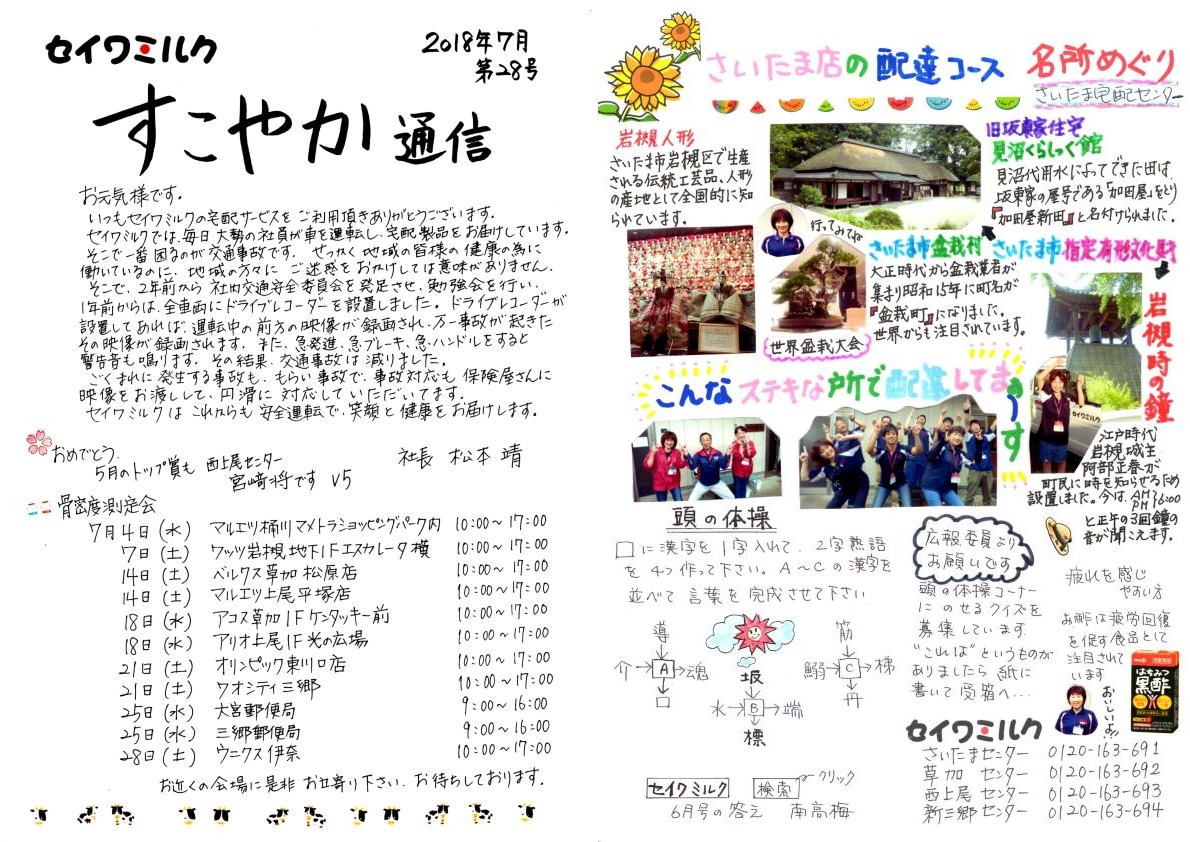 セイワミルク
2018年7月
第28号
すこやか通信
お元気様です。
いつもセイワミルクの宅配サービスをご利用頂きありがとうございます。
セイワミルクでは、毎日大勢の社員が車を運転し、宅配製品をお届けしています。
そこで一番困るのが交通事故です。せっかく地域の皆様の健康の為に
働いているのに、地域の方々にご迷惑をおかけしては意味がありません。
そこで、2年前から社内交通安全委員会を発足させ、勉強会を行い、
1年前からは、全車両にドライブレコーダーを設置しました。ドライブレコーダーが
設置してあれば、運転中の前方の映像が録画され、万一事故が起きた
その映像が録画されます。また、急発進、急ブレーキ、急ハンドルをすると
警告音も鳴ります。その結果、交通事故は減りました。
ごくまれに発生する事故も、もらい事故で、事故対応も保険屋さんに
映像をお渡しして、円滑に対応していただいてます。
セイワミルクはこれからも安全運転で、笑顔と健康をお届けします。
社長 松本 靖
おめでとう
5月のトップ賞も 西上尾センター
宮崎将です V5
骨密度測定会
7月4日(水) マルエツ桶川マメトラショッピングパーク内 10:00~17:00
7日(土) ワッツ岩槻地下1Fエスカレータ横 10:00~17:00
14日(土) ベルクス草加松原店 10:00~17:00
14日(土) マルエツ上尾平塚店 10:00~17:00
18日(水) アコス草加1Fケンタッキー前 10:00~17:00
18日(水) アリオ上尾1F光の広場 10:00~17:00
21日(土) オリンピック東川口店 10:00~17:00
21日(土) ワオシティ三郷 10:00~17:00
25日(水) 大宮郵便局 9:00~16:00
25日(水) 三郷郵便局 9:00~16:00
28日(土) ウニクス伊奈 10:00~17:00
お近くの会場に是非お立寄り下さい。お待ちしております。
さいたま店の配達コース 名所めぐり
さいたま宅配センター
岩槻人形
さいたま市岩槻区で生産
される伝統工芸品、人形
の産地として全国的に知
られています。
旧坂東家住宅
見沼くらしっく館
見沼代用水によってできた田は、
坂東家の屋号である「加田屋」をとり
『加田屋新田』と名付けられました。
行ってみてね
さいたま市盆栽村
大正時代から盆栽業者が
集まり昭和15年に町名が
『盆栽町』になりました。
世界からも注目されています。
世界盆栽大会
さいたま市指定有形文化財
岩槻時の鐘
江戸時代
岩槻城主
阿部正春が
町民に時を知らせるため
設置しました。今は、AM PM 6:00
と正午の3回鐘の
音が聞こえます。
セイワミルク
こんなステキな所で配達してまぁ〜す
頭の体操
□に漢字を1字入れて、2字熟語
を4つ作って下さい。A~Cの漢字を
並べて言葉を完成させて下さい
導
介→A→魂
口
坂
水→B→端
標
筋
鰯→C→梯
丹
広報委員より
お願いです
頭の体操コーナー
にのせるクイズを
募集しています。
"これは"というものが
ありましたら紙に
書いて受箱へ…
疲れを感じ
やすい方
お酢は疲労回復
を促す食品として
注目されて
います
おいしいよ!!
meiji
はちみつ
黒酢
セイワミルク 検索 クリック
6月号の答え 南高梅
セイワミルク
さいたまセンター 0120-163-691
草加センター 0120-163-692
西上尾センター 0120-163-693
新三郷センター 0120-163-694